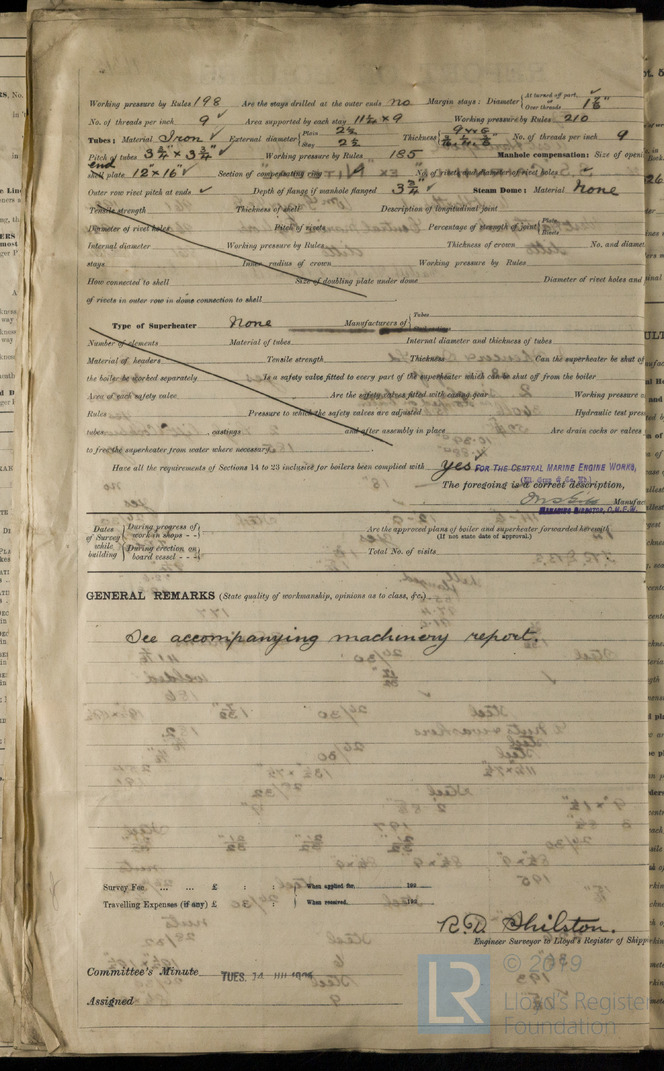 Working pressure by Rules 198 Are the stays drilled at the outer ends no Margin stays: Diameter At turned off part, or Over threads 1 7/8"
No. of threads per inch 9 Area supported by each stay 11 1/4 x 9 Working pressure by Rules 210
Tubes: Material Iron External diameter Plain 2 1/2 Stay 2 1/2 Thickness No. of threads per inch 9
Pitch of tubes 3 3/4" x 3 3/4" Working pressure by Rules 185 Manhole compensation: Size of openi
end shell plate 12 x 16" Section of compensating ring No. of rivets and diameter of rivet holes
Outer row rivet pitch at ends Depth of flange if manhole flanged 3 3/4" Steam Dome: Material None
Tensile strength Thickness of shell Description of longitudinal joint
Diameter of rivet holes Pitch of rivets Percentage of strength of joint Plate Rivets
Internal diameter Working pressure by Rules Thickness of crown No. and diamet
stays Inner radius of crown Working pressure by Rules
How connected to shell Size of doubling plate under dome Diameter of rivet holes and
of rivets in outer row in dome connection to shell
Type of Superheater None Manufacturers of Tubes
Number of elements Material of tubes Internal diameter and thickness of tubes
Material of headers Tensile strength Thickness Can the superheater be shut of
the boiler be worked separately Is a safety valve fitted to every part of the superheater which can be shut off from the boiler
Area of each safety valve Are the safety valves fitted with easing gear Working pressure
Rules Pressure to which the safety valves are adjusted Hydraulic test pres
tubes , castings and after assembly in place Are drain cocks or valves
to free the superheater from water where necessary
Have all the requirements of Sections 14 to 23 inclusive for boilers been complied with yes FOR THE CENTRAL MARINE ENGINE WORKS,
(Wm. Gray & Co. Ld.)
The foregoing is a correct description,
Manufac
MANAGING DIRECTOR, C.M.E.W.
Dates of Survey while building During progress of work in shops - - Are the approved plans of boiler and superheater forwarded herewith
(If not state date of approval.)
During erection on board vessel - - - Total No. of visits
GENERAL REMARKS (State quality of workmanship, opinions as to class, &c.)
See accompanying machinery report.
Survey Fee ... ... £ : : When applied for, 192
Travelling Expenses (if any) £ : : When received, 192
R.D. Shilston.
Engineer Surveyor to Lloyd's Register of Shipp
Committee's Minute TUES. 14
Assigned
© 2019
LR
Lloyd's Register
Foundation